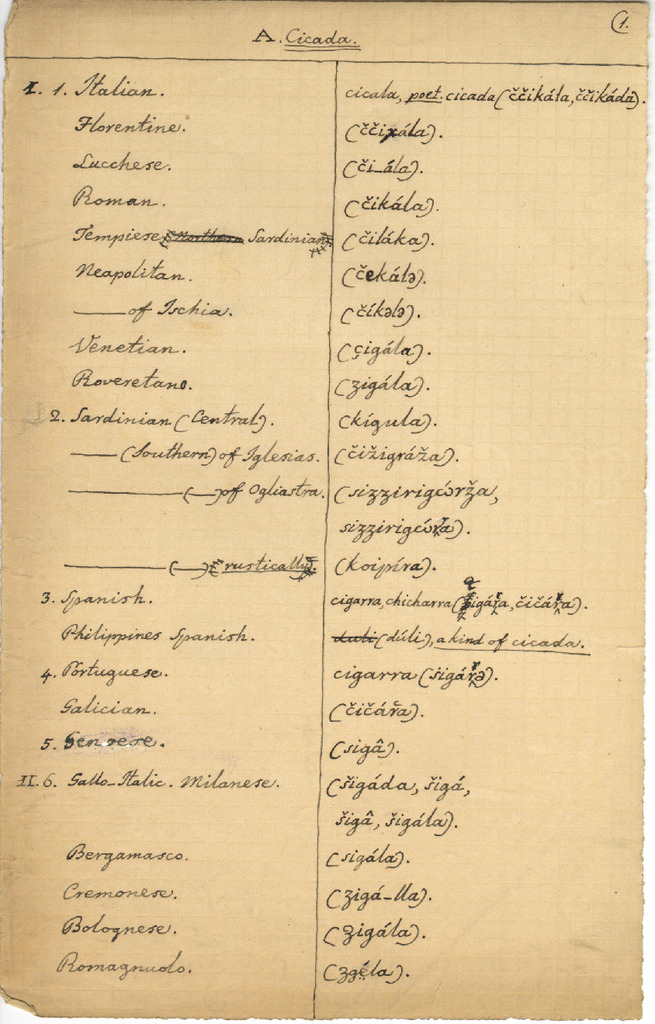 1.
A. Cicada.
I. 1. Italian. cicala, poet. cicada (ččikála, ččikáda).
Florentine. (ččixála).
Lucchese. (či_ála).
Roman. (čikála).
Tempiese [Northern Sardinian]. (čiláka).
Neapolitan. (čekálə).
——— of Ischia. (číkələ).
Venetian. (çigála).
Roveretano. (zigála).
2. Sardinian (Central). (kígula).
——— (Southern) of Iglesias. (čižigráža).
——— (—) of Ogliastra. (sizzirigórža,
sizzirigóřa).
——— (—) [rustically]. (koipíra).
3. Spanish. cigarra, chicharra (igářa, čičářa).
Philippines Spanish. duli (dúli), a kind of cicada.
4. Portuguese. cigarra (sigářə).
Galician. (čičářa).
5. Genoese. (sigâ).
II. 6. Gallo-Italic. Milanese. (šigáda, šigá,
šigâ, šigála).
Bergamasco. (sigála).
Cremonese. (zigá-lla).
Bolognese. (zigála).
Romagnuolo. (zgéla).